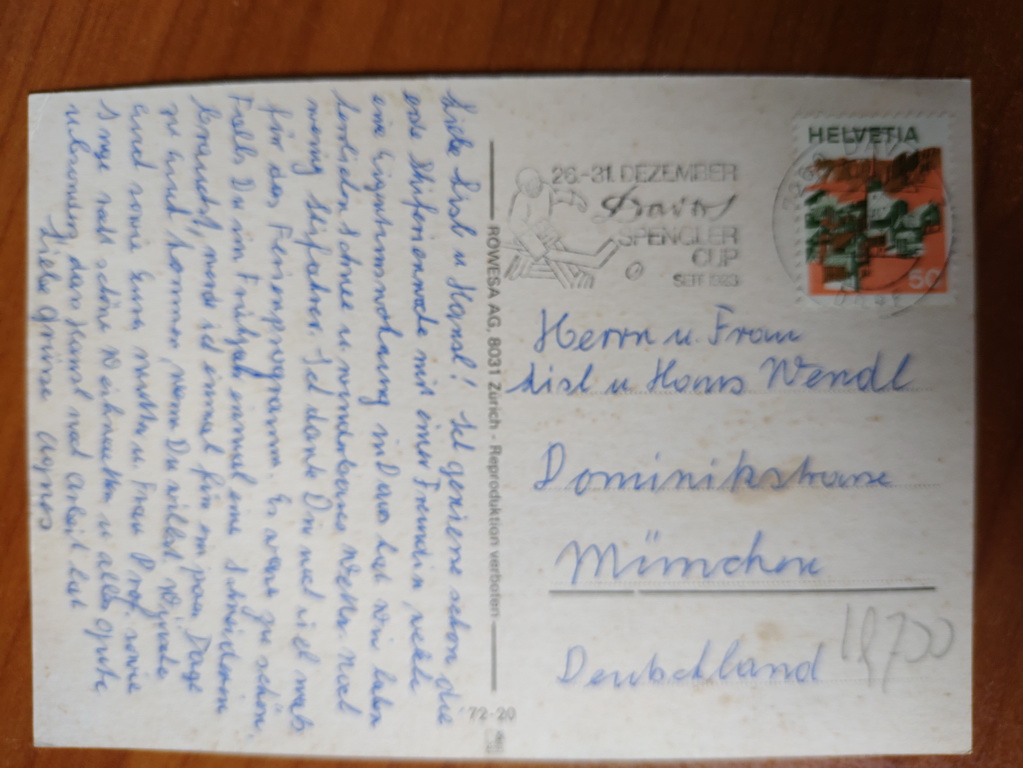 Liebe Lisl u Hansl! Ich geniesse schon die
erste Skiferienwoche mit einer Freundin
eine Eigentumswohnung in Davos hat wir haben
herrlichen Schnee u wunderbares Wetter. Noch
wenig Skifahrer. Ich danke Dir noch
für das Ferienprogramm. Es wäre zu schön,
Falls Du im Frühjahr einmal eine Schneiderin
brauchst, werde ich einmal für ein paar Tage
zu Euch kommen, wenn Du willst. Wünsche
Euch sowie Eurer Mutter u. Frau Prof. sowie
Inge recht schöne Weihnachten u alles Gute
dass Hansl noch Arbeit hat
Liebe Grüsse Agnes
ROWESA AG, 8031 Zürich - Reproduktion verboten
72-20
26.-31. DEZEMBER
Davos
SPENGLER
CUP
SEIT 1923
HELVETIA
50
Herrn u. Frau
Lisl u Hans Wendl
Dominikstrasse
München
Deutschland